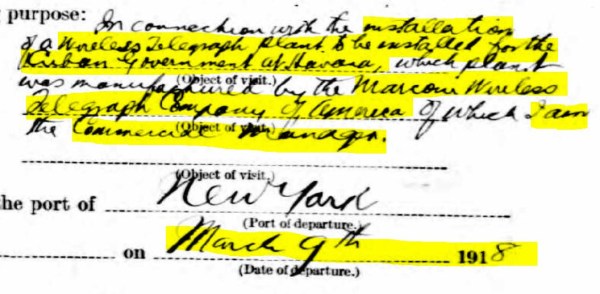 purpose:
In connection with the installation
of a Wireless Telegraph plant to be installed for the
Cuban Government at Havana, which plant
(Object of visit.)
was manufactured by the Marconi Wireless
Telegraph Company of America of which I am
(Object of visit.)
the Commercial Manager.
(Object of visit.)
the port of New York
(Port of departure.)
on March 9th 1918
(Date of departure.)